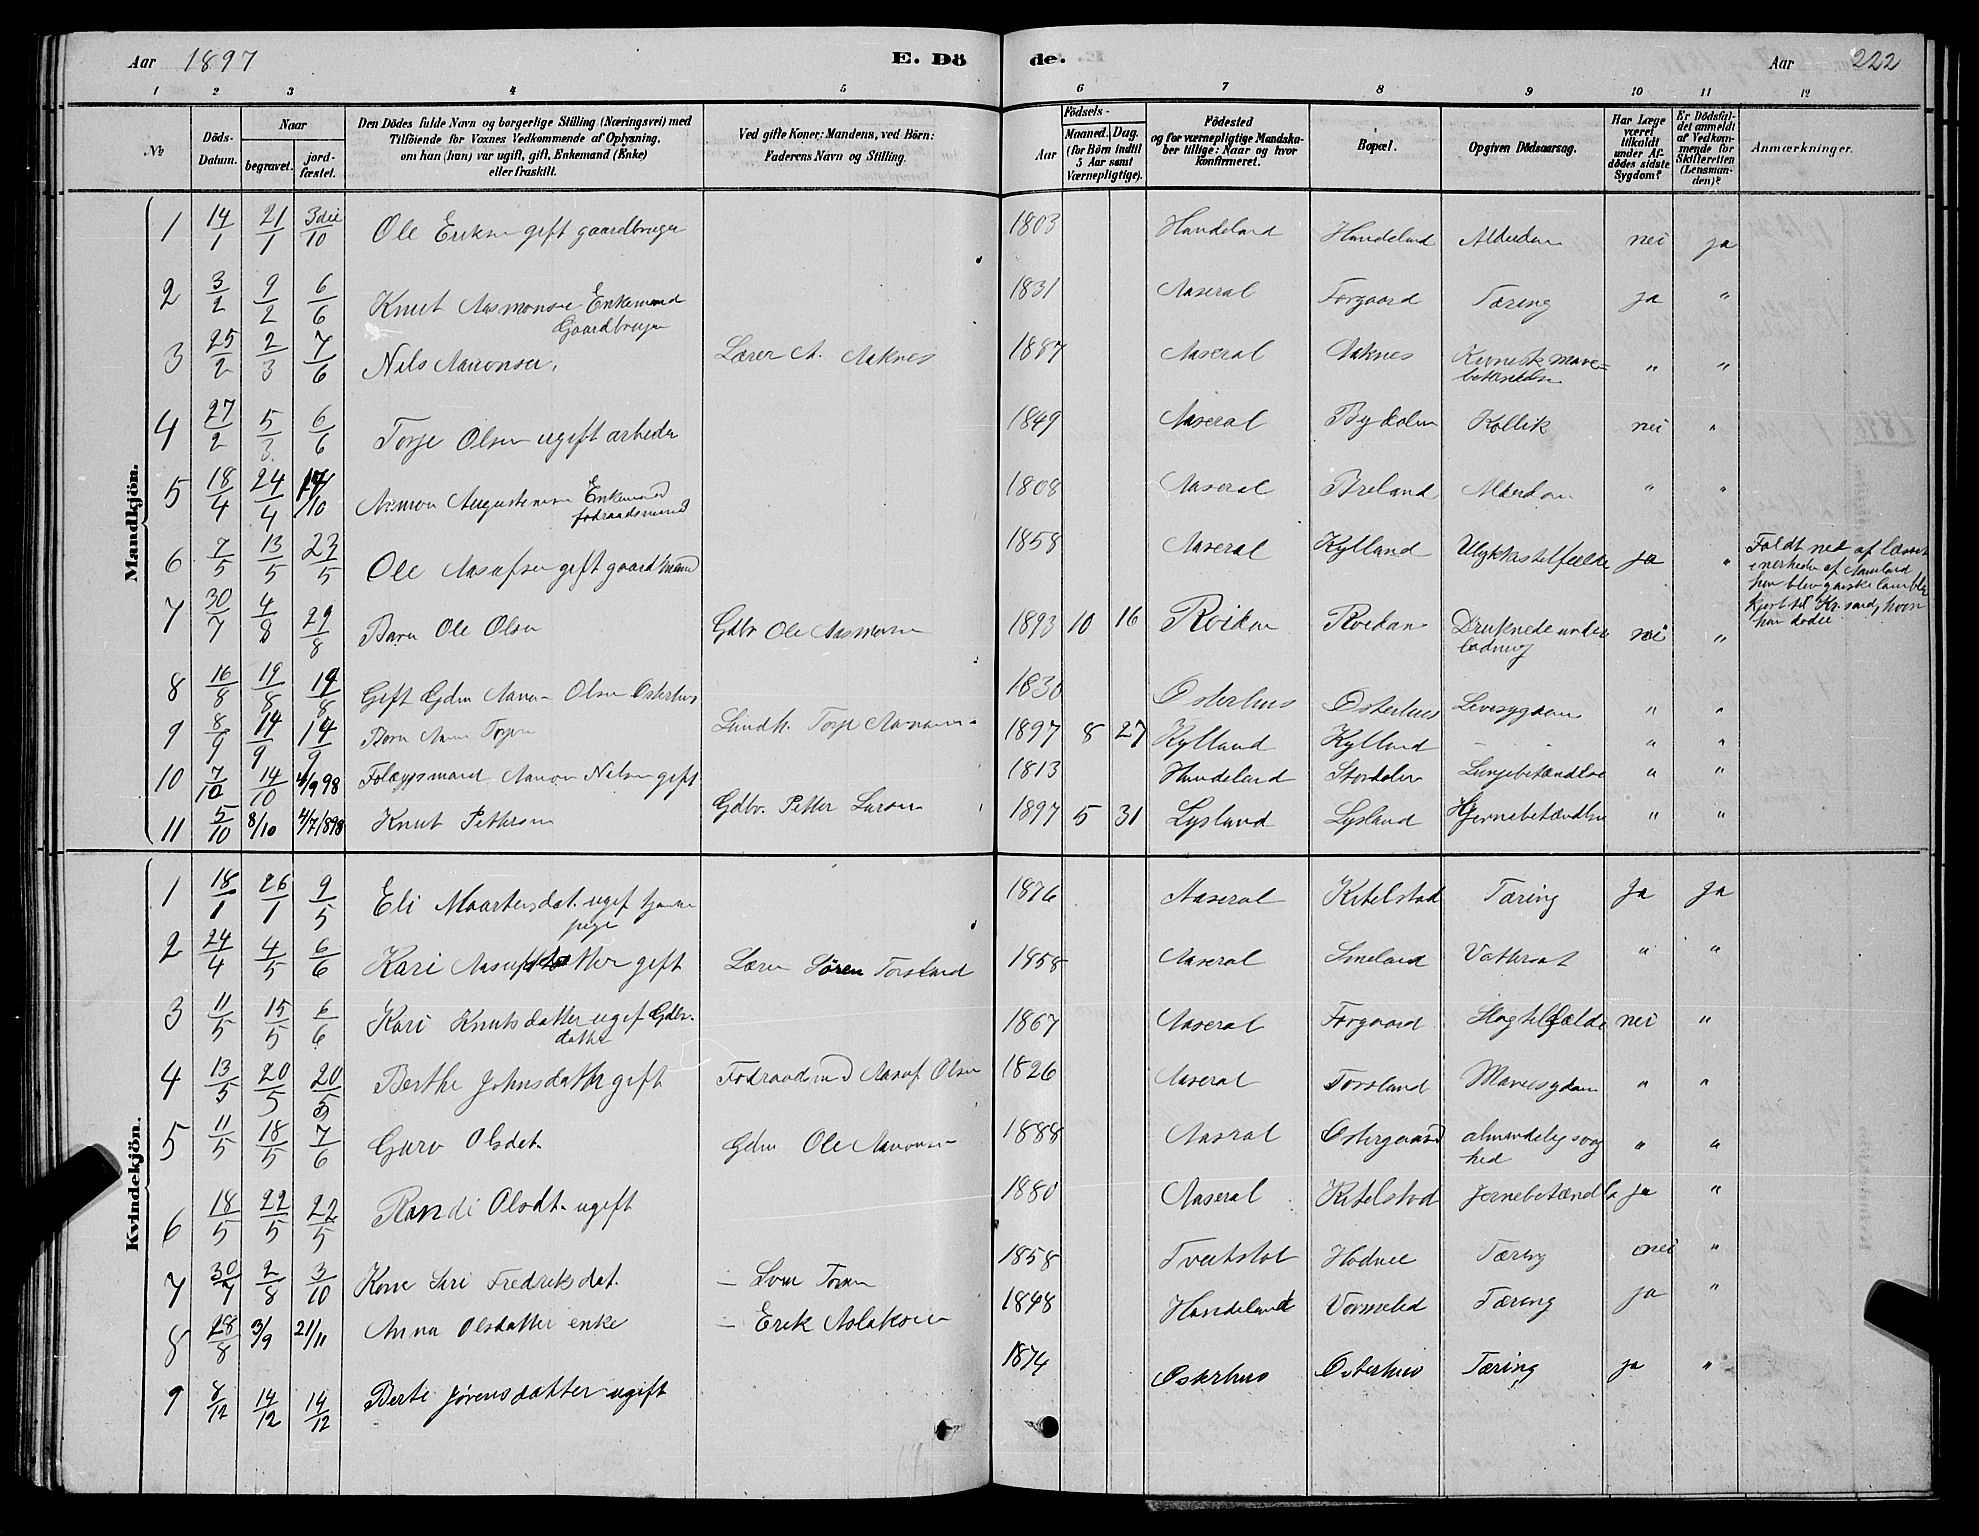 Aar 1897 E. Dö de. Aar 222
1 2 3 4 5 6 7 8 9 10 11 12
No
Döds-Datum.
Naar
begravet.
jord-fæstet.
Den Dödes fulde Navn og borgerlige Stilling (Næringsvei) med
Tilföiende for Voxnes Vedkommende af Oplysning,
om han (hun) var ugift, gift, Enkemand (Enke)
eller fraskilt.
Ved gifte Koner: Mandens, ved Börn:
Faderens Navn og Stilling.
Födsels-
Aar
Maaned. Dag.
(for Börn indtil
5 Aar samt
Værnepligtige).
Födested
og for værnepligtige Mandska-
ber tillige: Naar og hvor
konfirmeret.
Bopæl.
Opgiven Dödsaarsag.
Har Læge
været
tilkaldt
under Af-
dödes sidste
Sygdom?
Er Dödsfal-
det anmeldt
af Vedkom-
mende for
Skifteretten
(Lensman-
den)?
Anmærkninger.
Mandkjön.
1 14/1 21/1 3die/10 Ole Eriksen gift gaardbruger 1803 Handeland Handeland Alderdom nei ja
2 3/2 9/2 6/6 Knut Aasmonsen Enkemand Gaardbruger 1831 Aaseral Forgaard Tæring ja "
3 25/2 2/3 7/6 Nils Aanonsen. Lærer A. Aaknes 1887 Aaseral Aaknes Kronisk mave-
betændelse " "
4 27/2 5/3 6/6 Torje Olsen ugift arbeider 1849 Aaseral Bydalen Kollik nei "
5 18/4 24/4 /10 Augustensen Enkemand
fodraadsmand 1808 Aaseral Breland Alderdom " "
6 7/5 13/5 23/5 Ole Aasufsen gift gaardmand 1858 Aaseral Kylland Ulykkestilfælde ja " Faldt ned af læsset
i nerheden af
han blev ganske lam blev
kjørt til Kr.sand, hvor
han døde
7 30/7 4/8 29/8 Barn Ole Olsen Gdbr. Ole Aasmonsen 1893 10 16 Roidan Roidan Druknede under
ladning nei "
8 16/8 19/8 19/8 Gift Gdm Aanon Olsen Osterhus 1830 Osterhus Osterhus Leversygdom " "
9 8/9 14/9 14/9 Barn Torje Aanonsen 1897 8 27 Kylland Kylland - " "
10 7/10 14/10 4/9 98 Folægsmand Aanon Nilsen gift 1813 Handeland Stordalen Lungebetændelse " "
11 5/10 8/10 4/7 1898 Knut Pettersen Gdbr. Petter Larsen 1897 5 31 Lysland Lysland Hjernebetændelse " "
Kvindekjön.
1 18/1 26/1 9/5 Eli Maartensdat. ugift tjeneste
pige 1876 Aaseral Kitelstad Tæring Ja Ja
2 24/4 4/5 6/6 Kari Aasufsdatter gift Lærer Sören Torsland 1858 Aaseral Smeland Vattersot " "
3 11/5 15/5 6/6 Kari Knutsdatter ugift Gdbr.
datter 1867 Aaseral Forgaard Slagtilfælde nei "
4 13/5 20/5 20/5 Berthe Johnsdatter gift Fodraadsmd Aasuf Olsen 1826 Aaseral Torsland Mavesygdom " "
5 11/5 18/5 7/6 Guro Olsdet. Gdm Ole Aanonsen 1888 Aaseral Ostergaard almindelig svag
hed " "
6 18/5 22/5 22/5 Randi Olsdt. ugift 1880 Aaseral Kitelstad Jernebetændls ja "
7 30/7 2/8 3/10 Kone Siri Fredriksdat. - Sven 1858 Tveitstol Hodnee Tæring nei "
8 28/8 3/9 21/11 Anna Olsdatter enke - Erik Aslaksen 1848 Handeland Vormelid Tæring ja "
9 8/12 14/12 14/12 Berte Jörensdatter ugift 1874 Osterhus Osterhus Tæring ja "